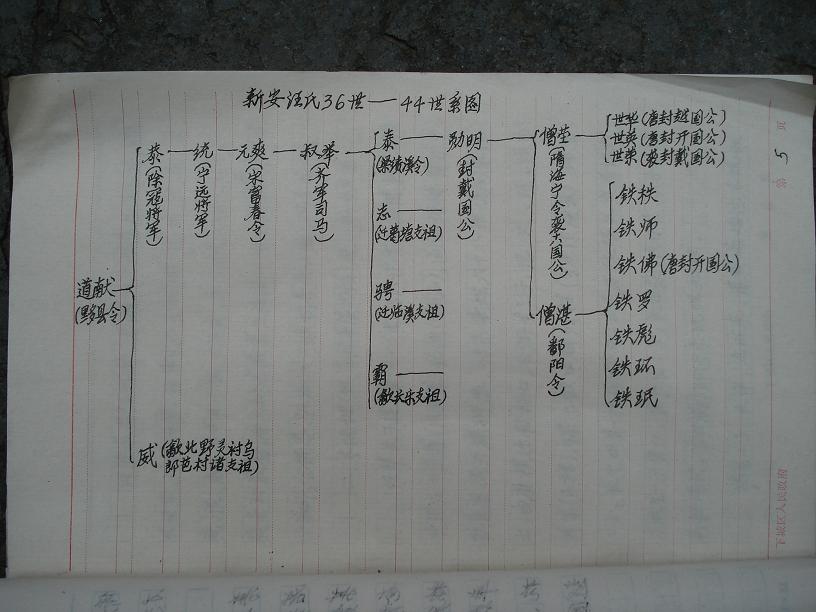 新安汪氏36世——44世系图
第5页
道献
(黟县令)
恭(除冠将军)
统(宁远将军)
元爽(宋富春令)
叔举(齐军司马)
泰
(梁绩溪令)
志
(迁葛塘支祖)
骋
(迁临溪支祖)
霸
(歙长乐支祖)
勋明(封戴国公)
僧莹(隋海宁令袭戴国公)
世华(唐封越国公)
世英(唐封开国公)
世荣(袭封戴国公)
僧湛(鄱阳令)
铁秩
铁师
铁佛(唐封开国公)
铁罗
铁彪
铁环
铁珉
威(歙北野灵村乌
郎芭村诸支祖)
下城区人民政府